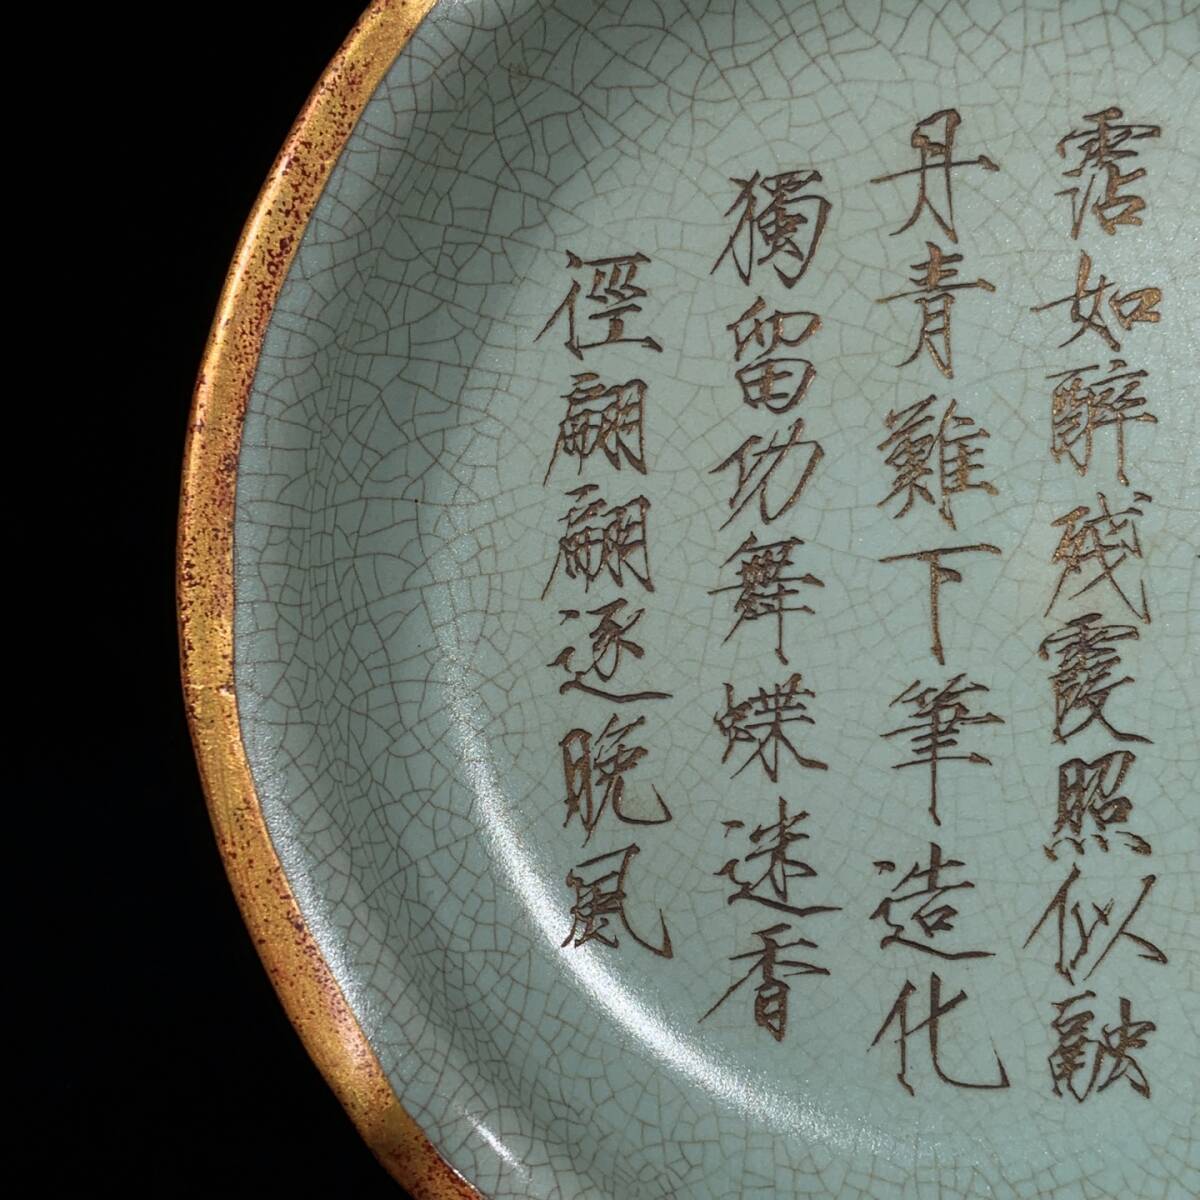 霑如醉残霞照似融
丹青難下筆造化
獨留功舞蝶迷香
徑翩翩逐晚風